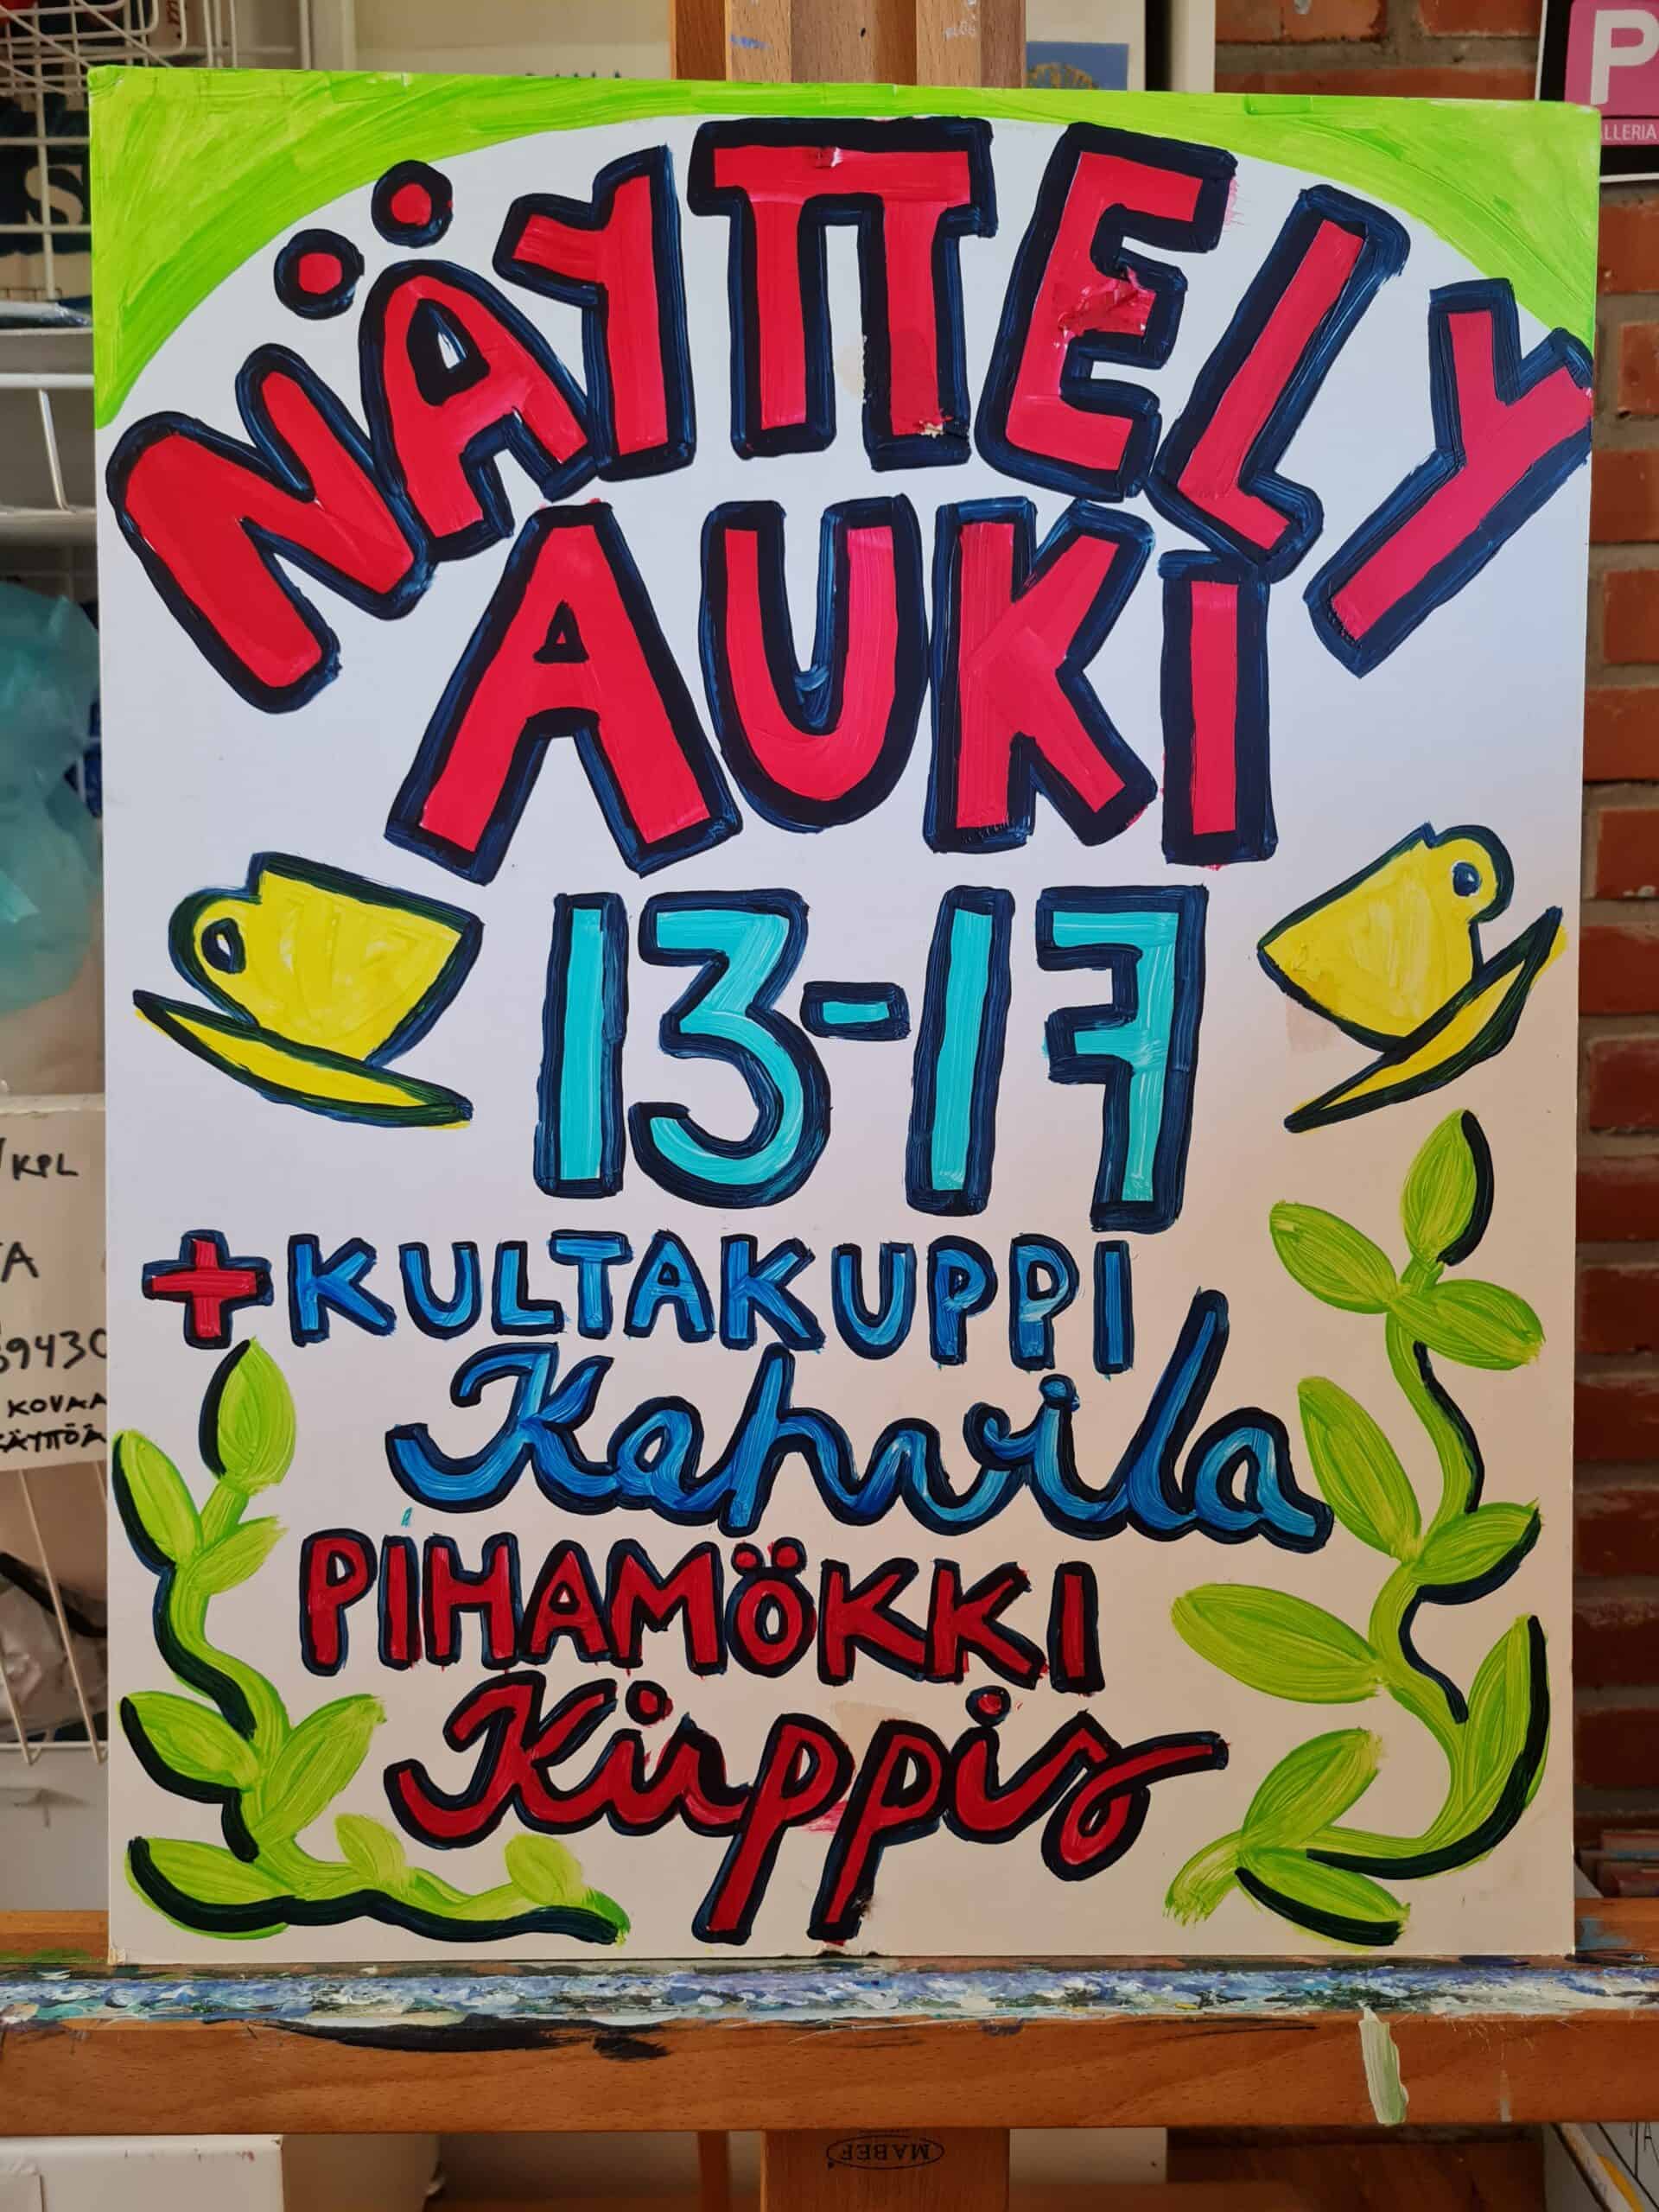 NÄYTTELY
AUKI
13-17
+KULTAKUPPI
Kahvila
PIHAMÖKKI
Kirppis
P
LLERIA
/KPL
TA
59430
KOVAA
KÄYTTÖÄ
MABEF